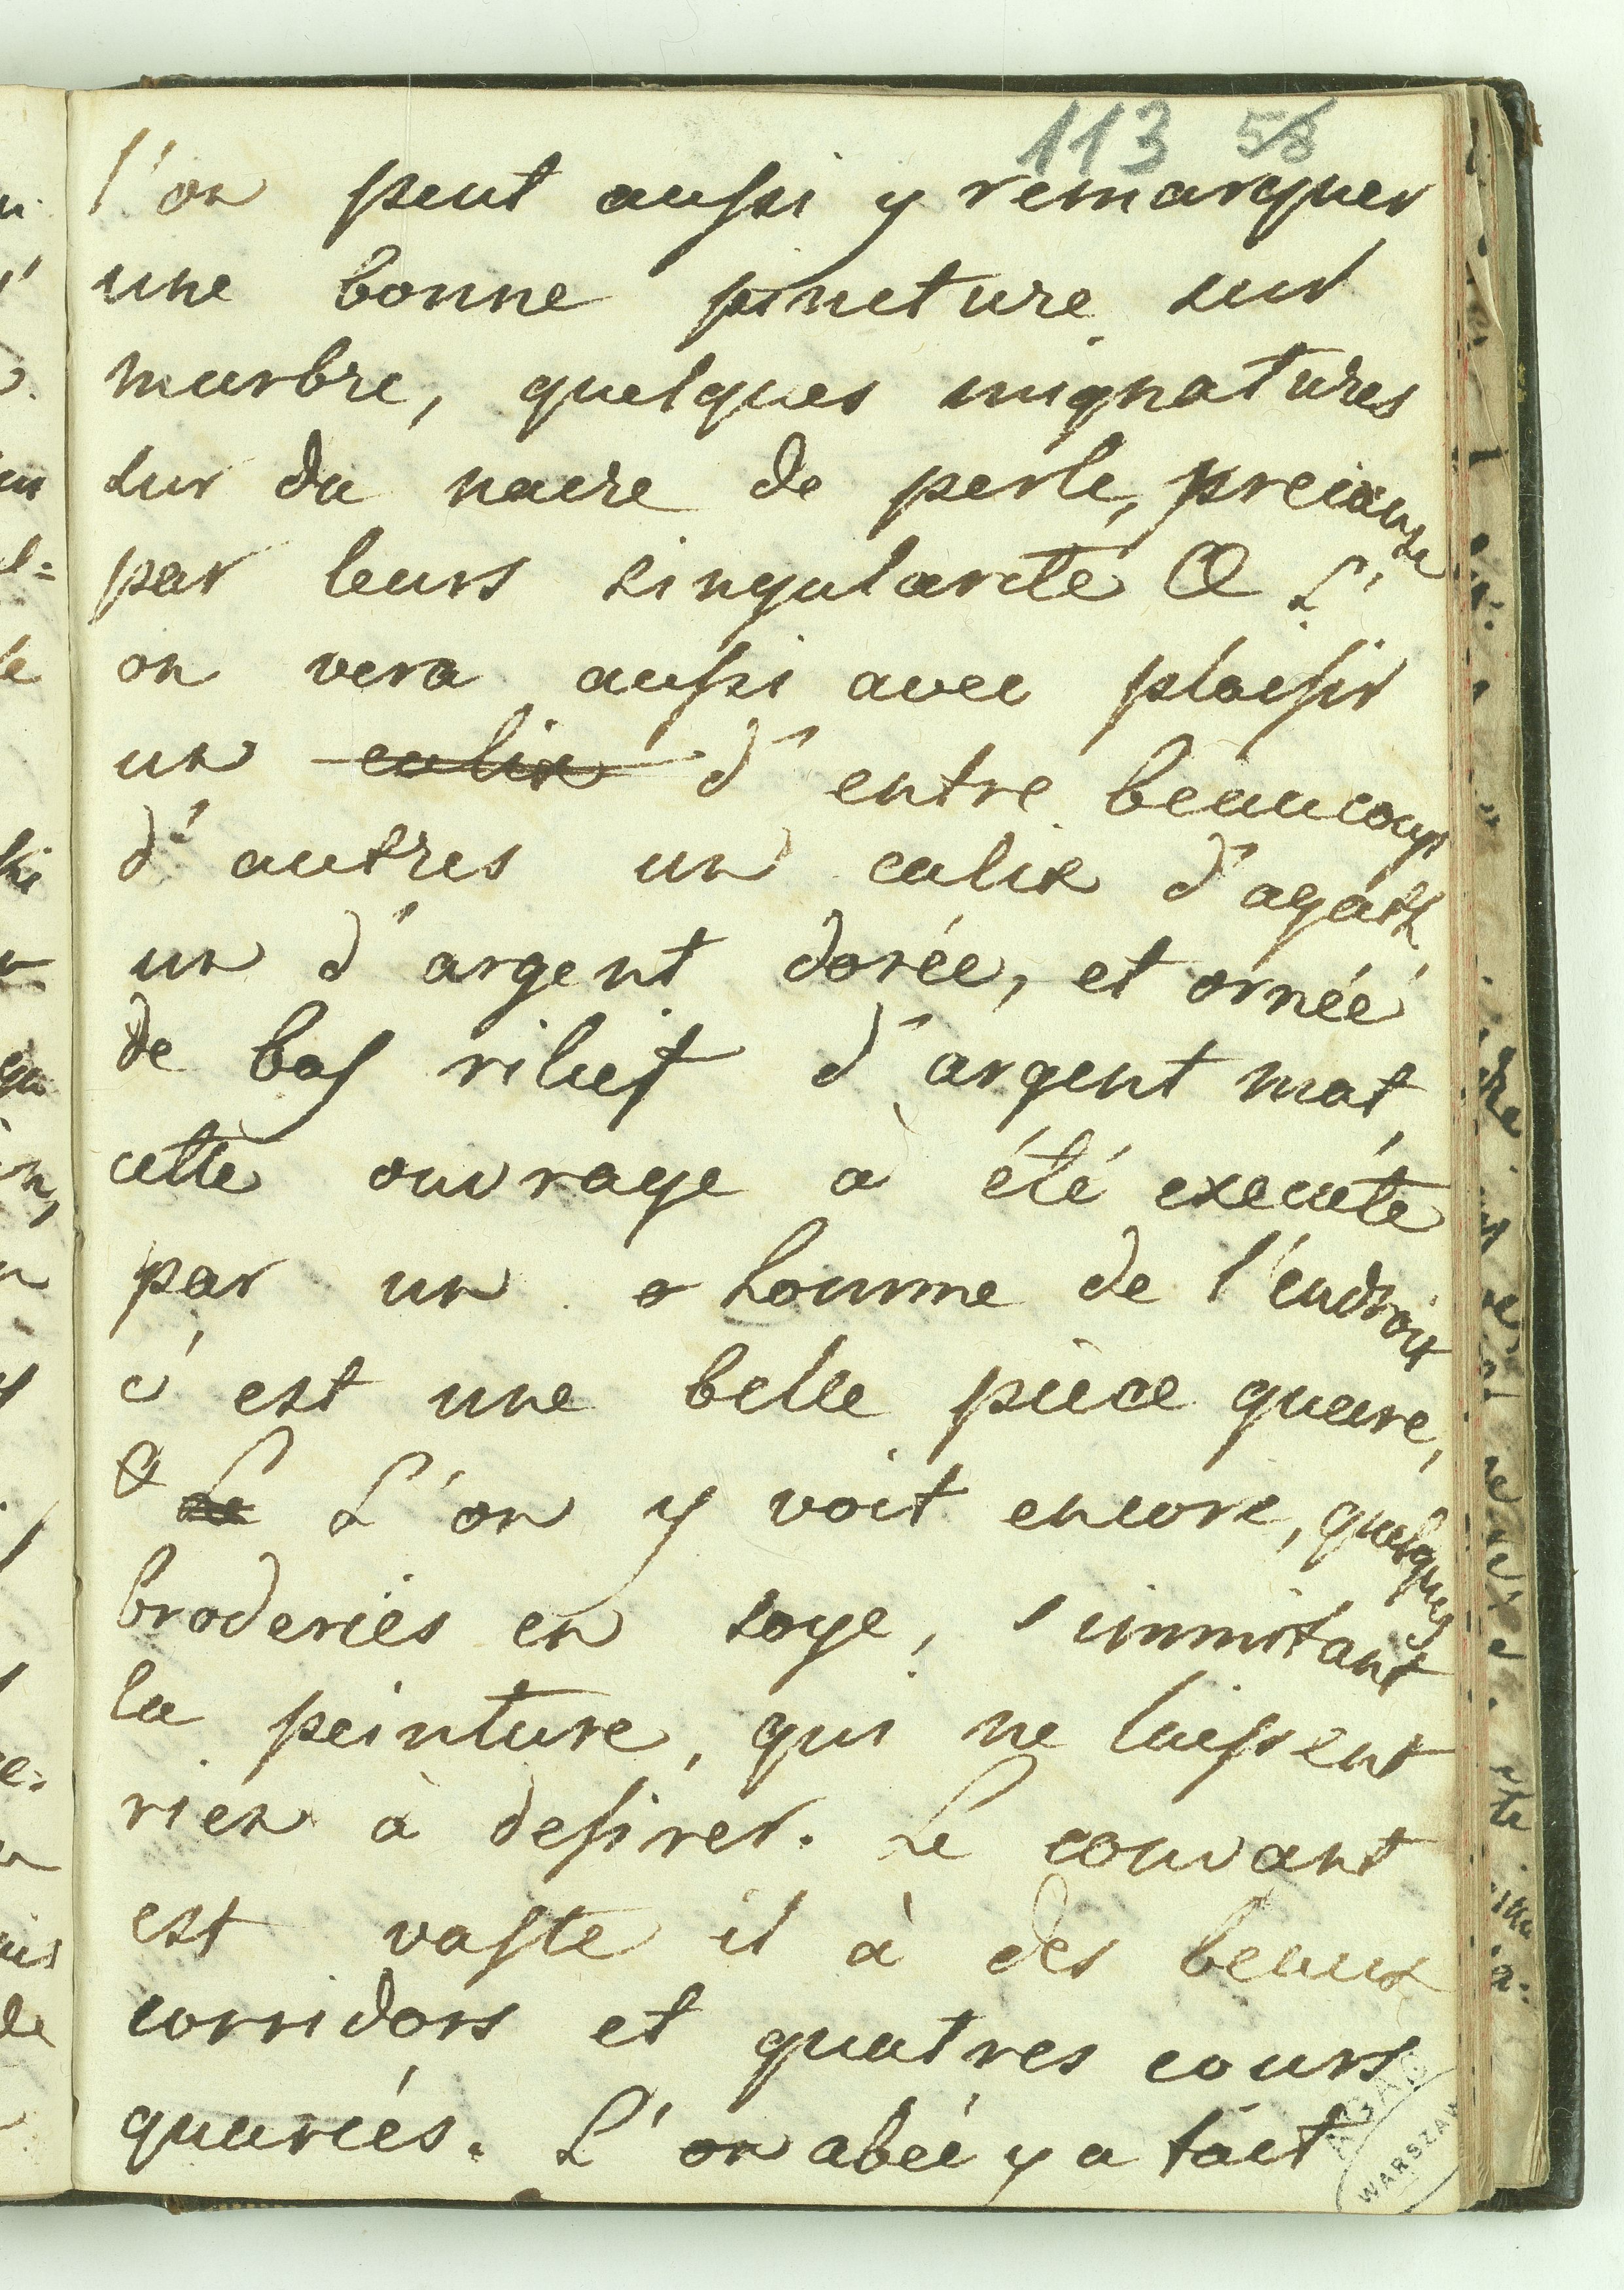 113 58
l'on peut aussi y remarquer
une bonne pincture sur
marbre, quelques mignatures
sur du nacre de perle, precause
par leurs singularité & L'
on vera aussi avec plaisir
un calix d'entre beaucoup
d'autres un calix d'agath
un d'argent dorée, et ornée
de bas rilief d'argent mat,
cette ouvrage a été executé
par un homme de l'endroit
c'est une belle pièce quare,
& Le L'on y voit encore, quelques
broderiés en soye, immitant
la peinture, qui ne laissent
rien à desirer. Le couvant
est vaste il à des beaux
corridors et quatres cours
quariés. L'on abéé y a fait
AGAD
WARSZAW